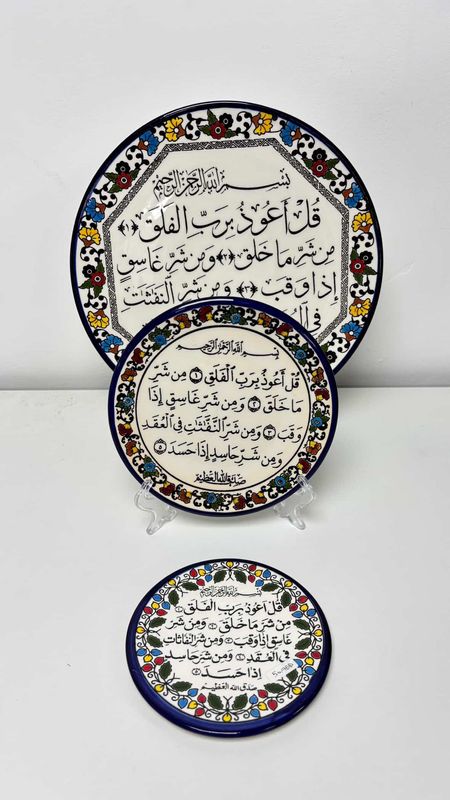 بسم الله الرحمن الرحيم
قُلْ أَعُوذُ بِرَبِّ الْفَلَقِ ﴿١﴾
مِن شَرِّ مَا خَلَقَ ﴿٢﴾ وَمِن شَرِّ غَاسِقٍ
إِذَا وَقَبَ ﴿٣﴾ وَمِن شَرِّ النَّفَّثَٰتِ
فِي
بسم الله الرحمن الرحيم
قُلْ أَعُوذُ بِرَبِّ الْفَلَقِ ١ مِن شَرِّ
مَا خَلَقَ ٢ وَمِن شَرِّ غَاسِقٍ إِذَا
وَقَبَ ٣ وَمِن شَرِّ النَّفَّثَٰتِ فِي الْعُقَدِ
وَمِن شَرِّ حَاسِدٍ إِذَا حَسَدَ ٥
صدق الله العظيم
بسم الله الرحمن الرحيم
قل أعوذ برب الفلق ١
من شر ما خلق ٢ ومن شر
غاسق إذا وقب ٣ ومن شر النفاثات
في العقد ٤ ومن شر حاسد
إذا حسد ٥
صدق الله العظيم